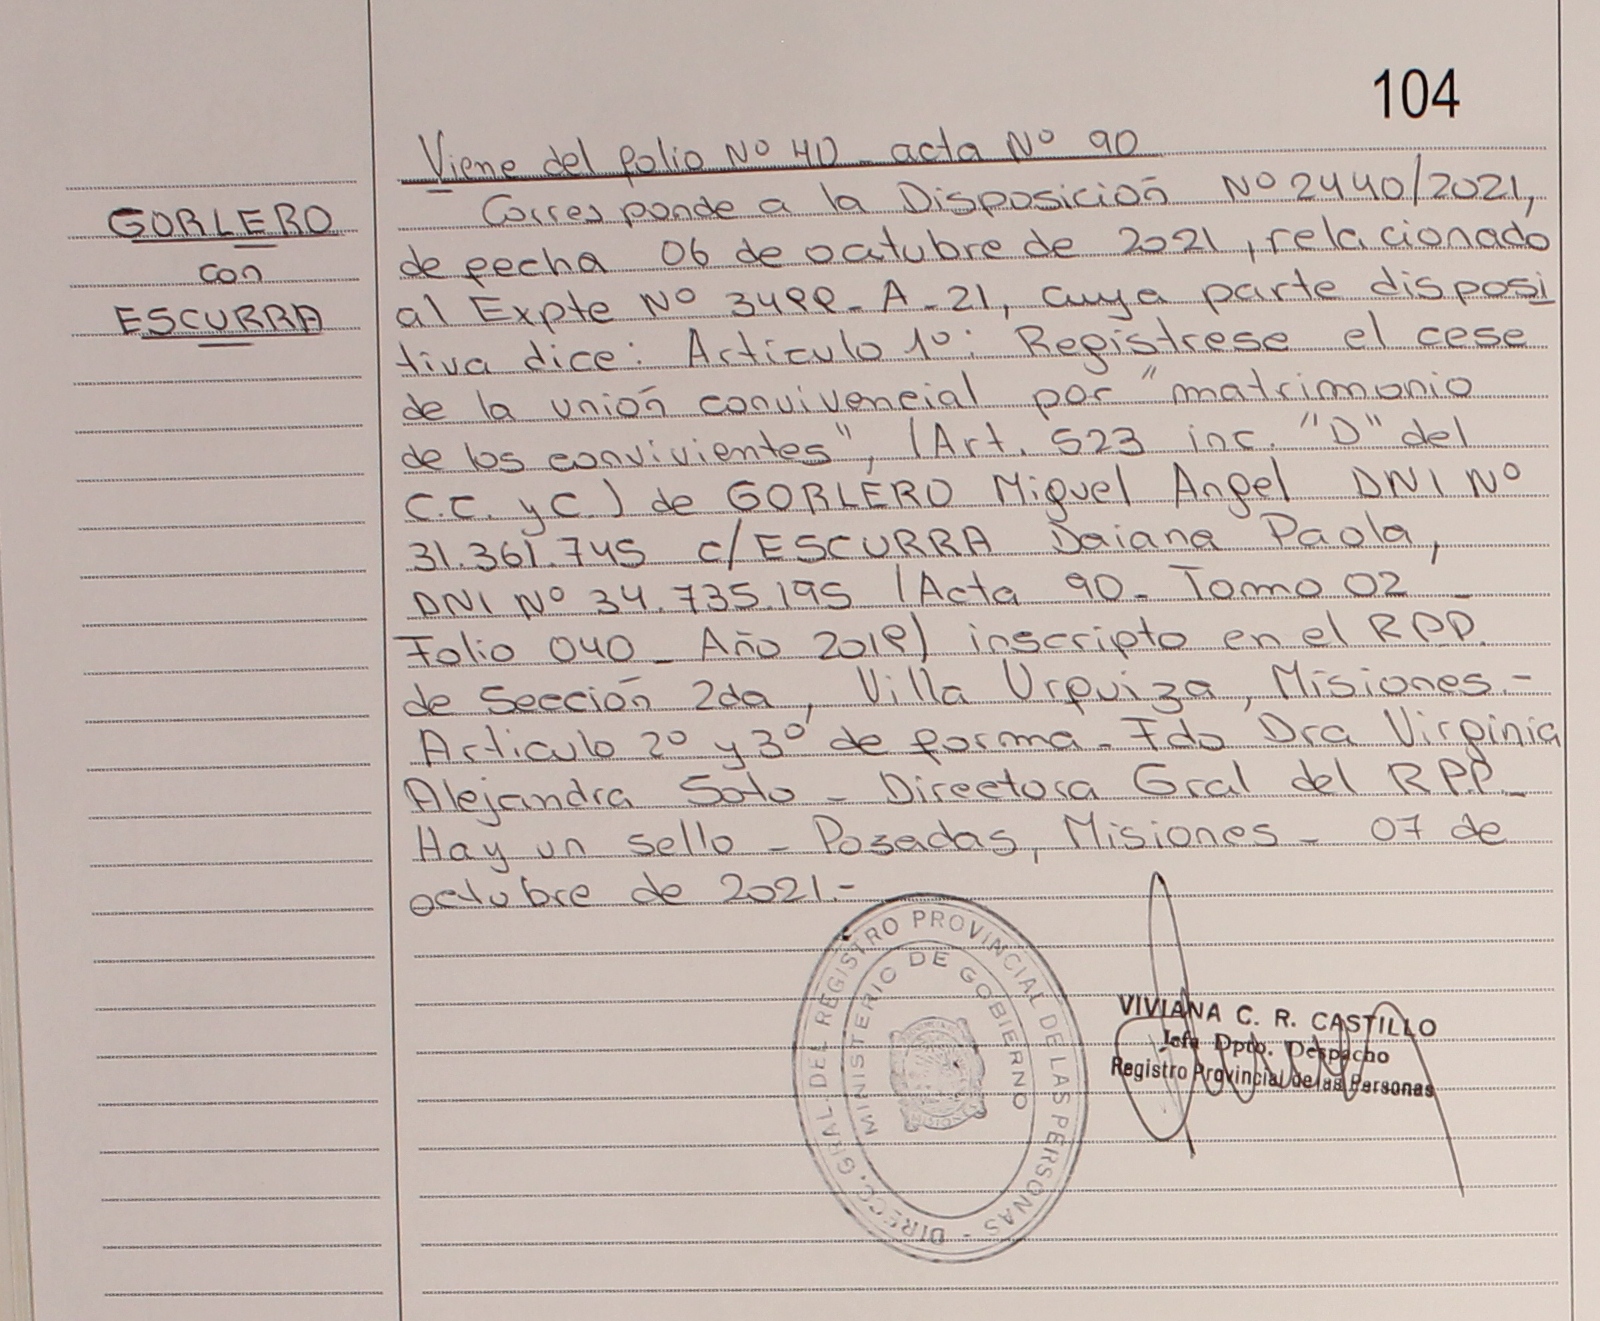 104
Viene del folio Nº 40 - acta Nº 90
GORLERO
con
ESCURRA
Corresponde a la Disposición Nº 2440/2021,
de fecha 06 de octubre de 2021, relacionado
al Expte Nº 3488-A-21, cuya parte disposi
tiva dice: Articulo 1º: Registrese el cese
de la unión convivencial por "matrimonio
de los convivientes", (Art. 523 inc. "D" del
C.C. y C.) de GORLERO Miguel Angel DNI Nº
31.361.745 c/ESCURRA Daiana Paola,
DNI Nº 34.735.195 (Acta 90 - Tomo 02 -
Folio 040 - Año 2018) inscripto en el RPP.
de Sección 2da, Villa Urquiza, Misiones.-
Articulo 2º y 3º de forma - Fdo Dra Virginia
Alejandra Soto - Directora Gral del RPP -
Hay un sello - Posadas, Misiones - 07 de
octubre de 2021.-
DIRECC. GRAL. DEL REGISTRO PROVINCIAL DE LAS PERSONAS -
MINISTERIO DE GOBIERNO
VIVIANA C. R. CASTILLO
Jefa Dpto. Despacho
Registro Provincial de las Personas